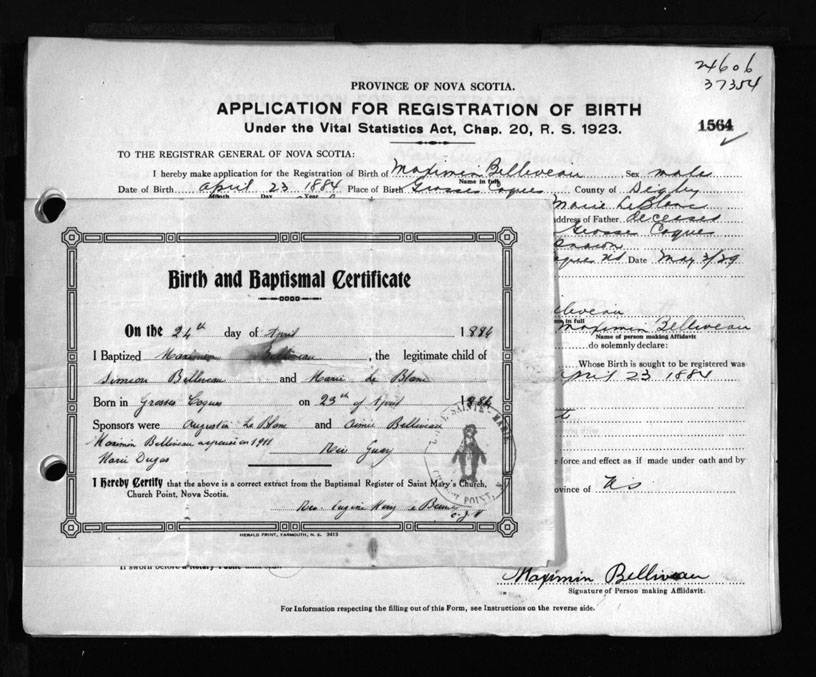 24606
37354
PROVINCE OF NOVA SCOTIA.
APPLICATION FOR REGISTRATION OF BIRTH
1564
Under the Vital Statistics Act, Chap. 20, R. S. 1923.
TO THE REGISTRAR GENERAL OF NOVA SCOTIA:
I hereby make application for the Registration of Birth of Maximin Belliveau Sex male
Name in full
Date of Birth April 23 1884 Place of Birth Grosses Coques County of Digby
Month Day Year
Marie LeBlanc
address of Father deceased
Grosses Coques
Date May 3/29
Belliveau
in full Maximin Belliveau
Name of person making Affidavit
do solemnly declare:
Whose Birth is sought to be registered was
April 23 1884
force and effect as if made under oath and by
Province of NS
Birth and Baptismal Certificate
On the 24th day of April 1884
I Baptized Maximin Belliveau, the legitimate child of
Simeon Belliveau and Marie Le Blanc
Born in Grosses Coques on 23th of April 1884
Sponsors were Augustin Le Blanc and Aimée Belliveau
Maximin Belliveau 1911
Marie Dugas
I Hereby Certify that the above is a correct extract from the Baptismal Register of Saint Mary's Church,
Church Point, Nova Scotia.
HERALD PRINT, YARMOUTH, N. S. 3413
If sworn before a Notary Public
Maximin Belliveau
Signature of Person making Affidavit.
For Information respecting the filling out of this Form, see Instructions on the reverse side.